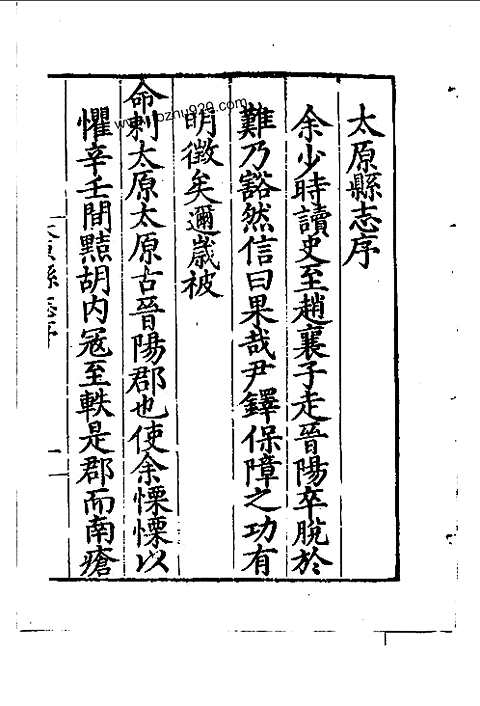 太原縣志序
余少時讀史至趙襄子走晉陽卒脫於
難乃豁然信曰果哉尹鐸保障之功有
明徵矣邇歲被
命刺太原太原古晉陽郡也使余慄慄以
懼辛壬間黠胡内寇至軼是郡而南瘡
太原縣志序 一